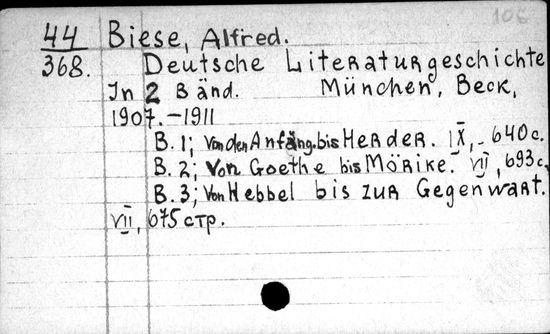 106
44 Biese, Alfred.
368. Deutsche Literaturgeschichte
In 2 Bänd. München, Beck,
1907.-1911
B. 1; Von den Anfäng. bis Herder. IX, 640 c.
B. 2; Von Goethe bis Mörike. VII, 693 c.
B. 3; Von Hebbel bis zur Gegenwart.
VII, 675 стр.